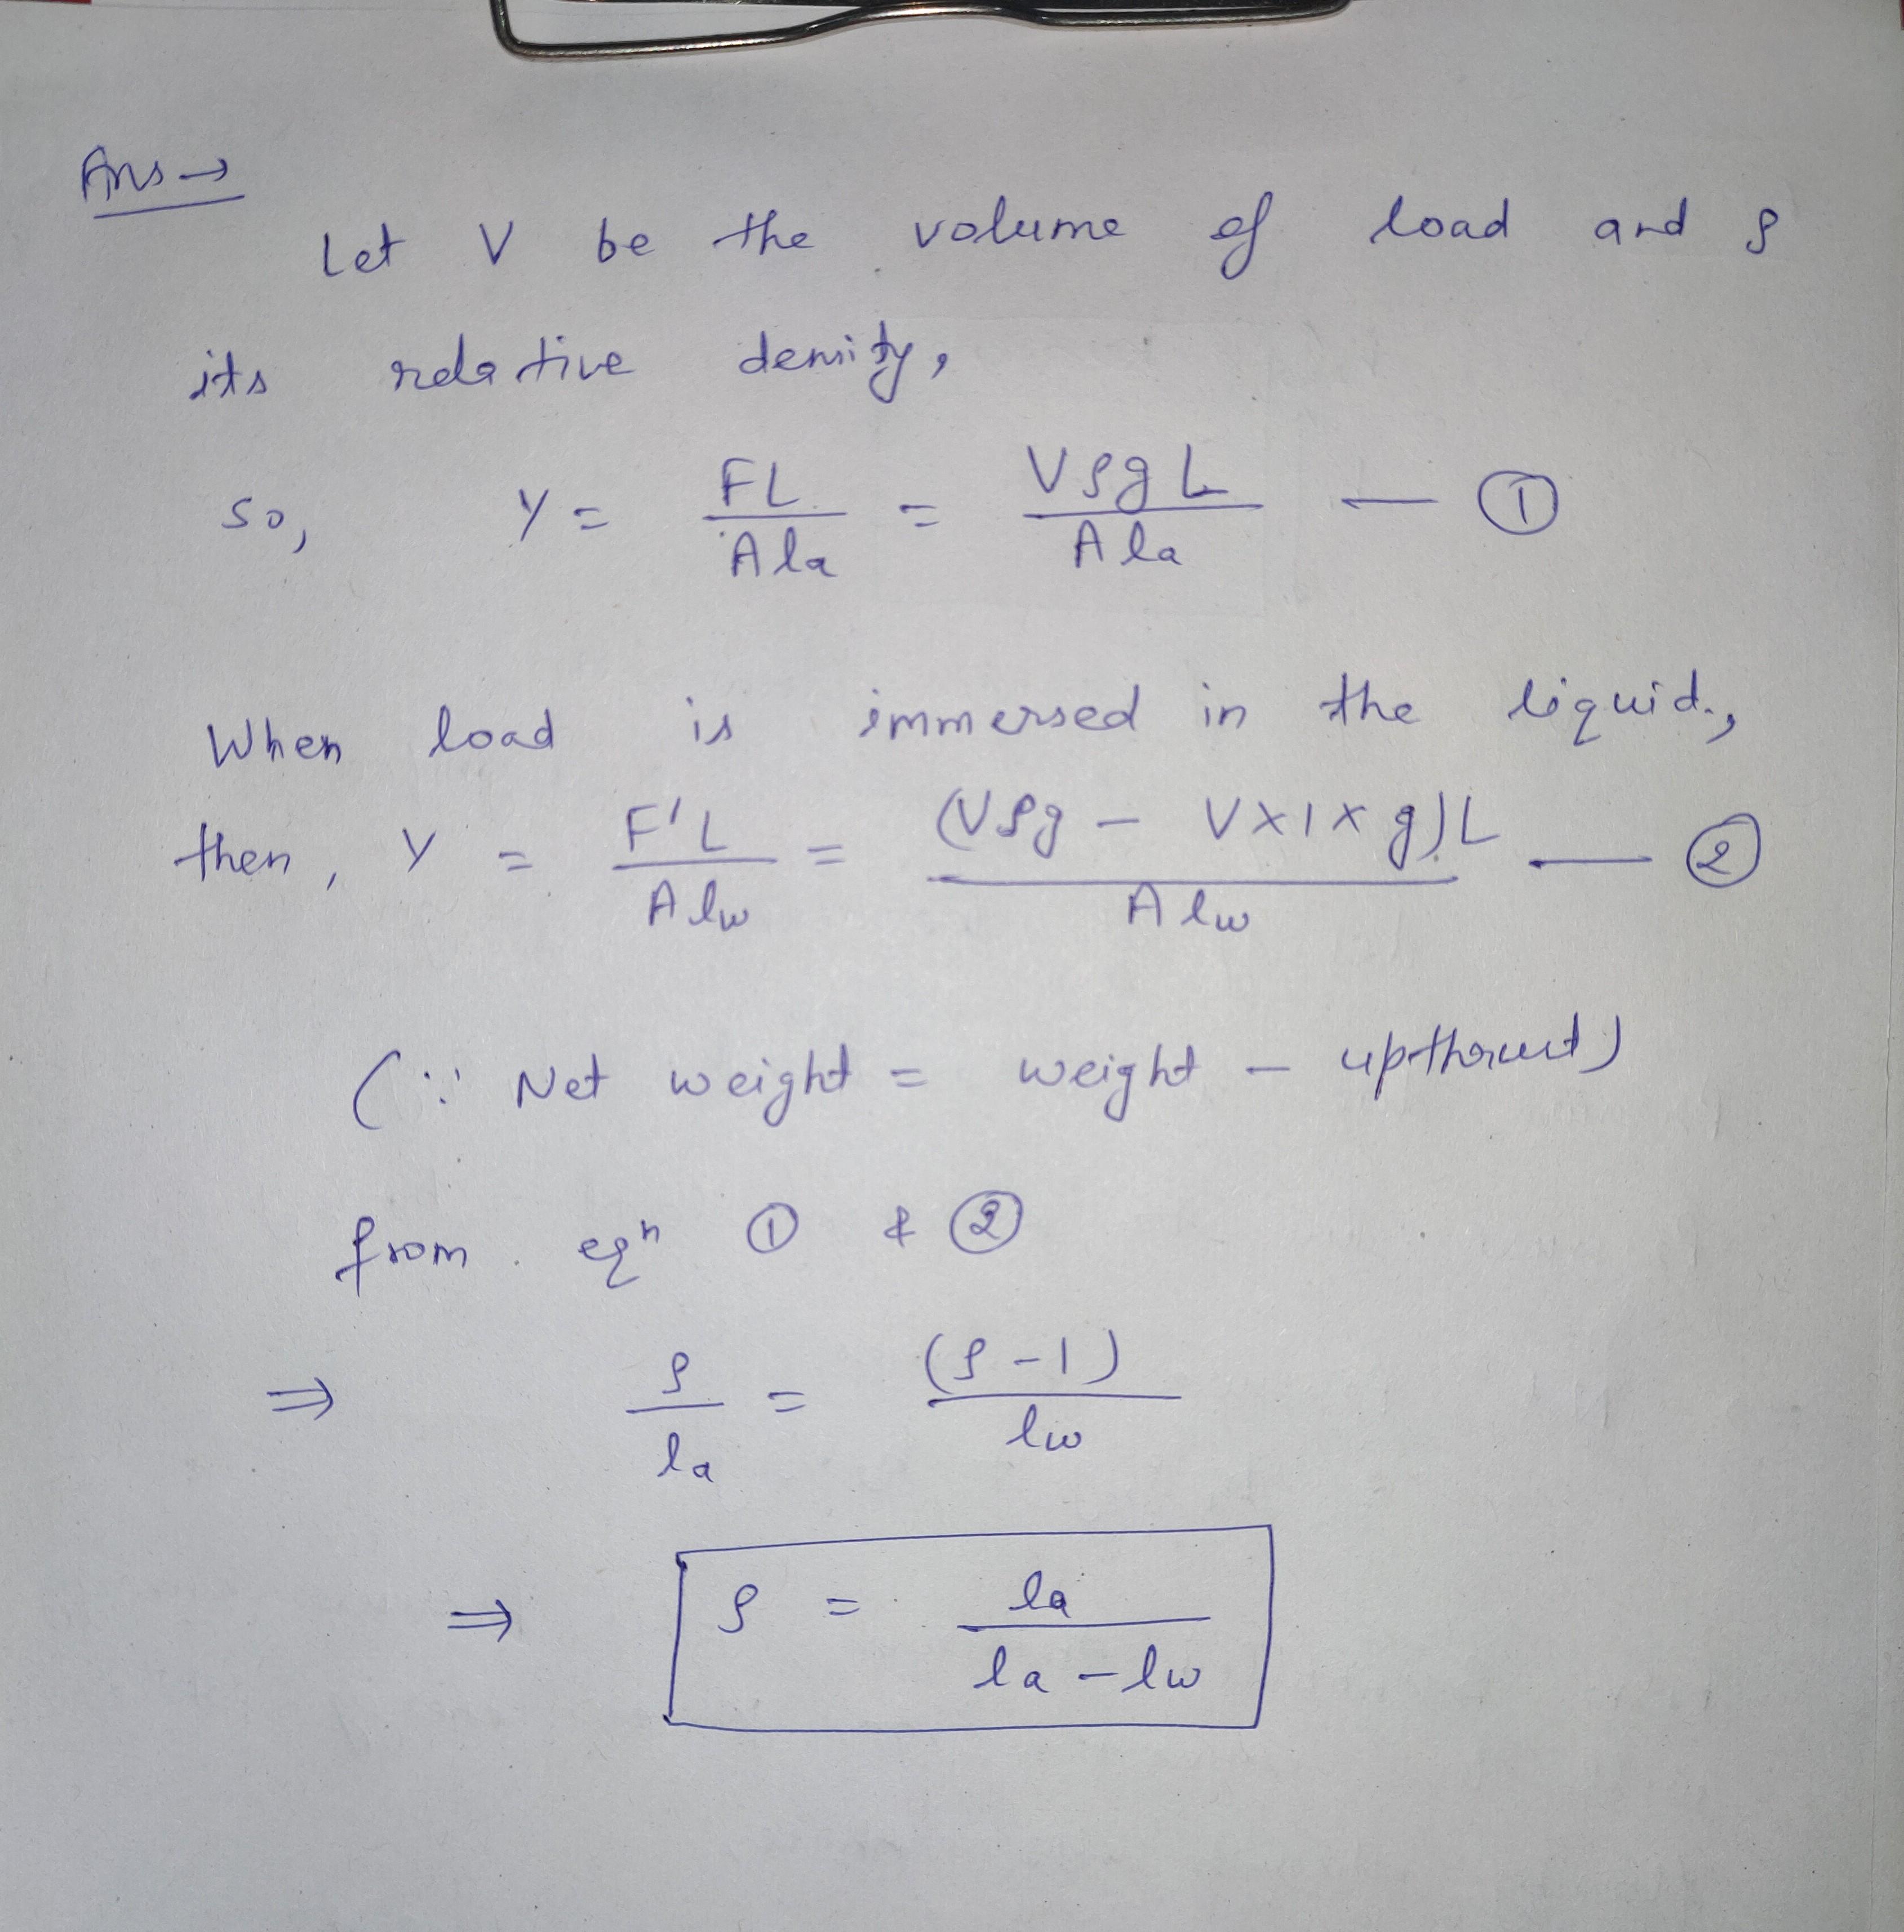 Ans →
Let V be the volume of load and ρ
its relative density,
so, Y = FL / A la = VρgL / A la — ①
When load is immersed in the liquid,
then, Y = F'L / A lw = (Vρg - V×1×g)L / A lw — ②
(∵ Net weight = weight - upthrust)
from eqⁿ ① & ②
⇒ ρ / la = (ρ-1) / lw
⇒ ρ = la / la - lw